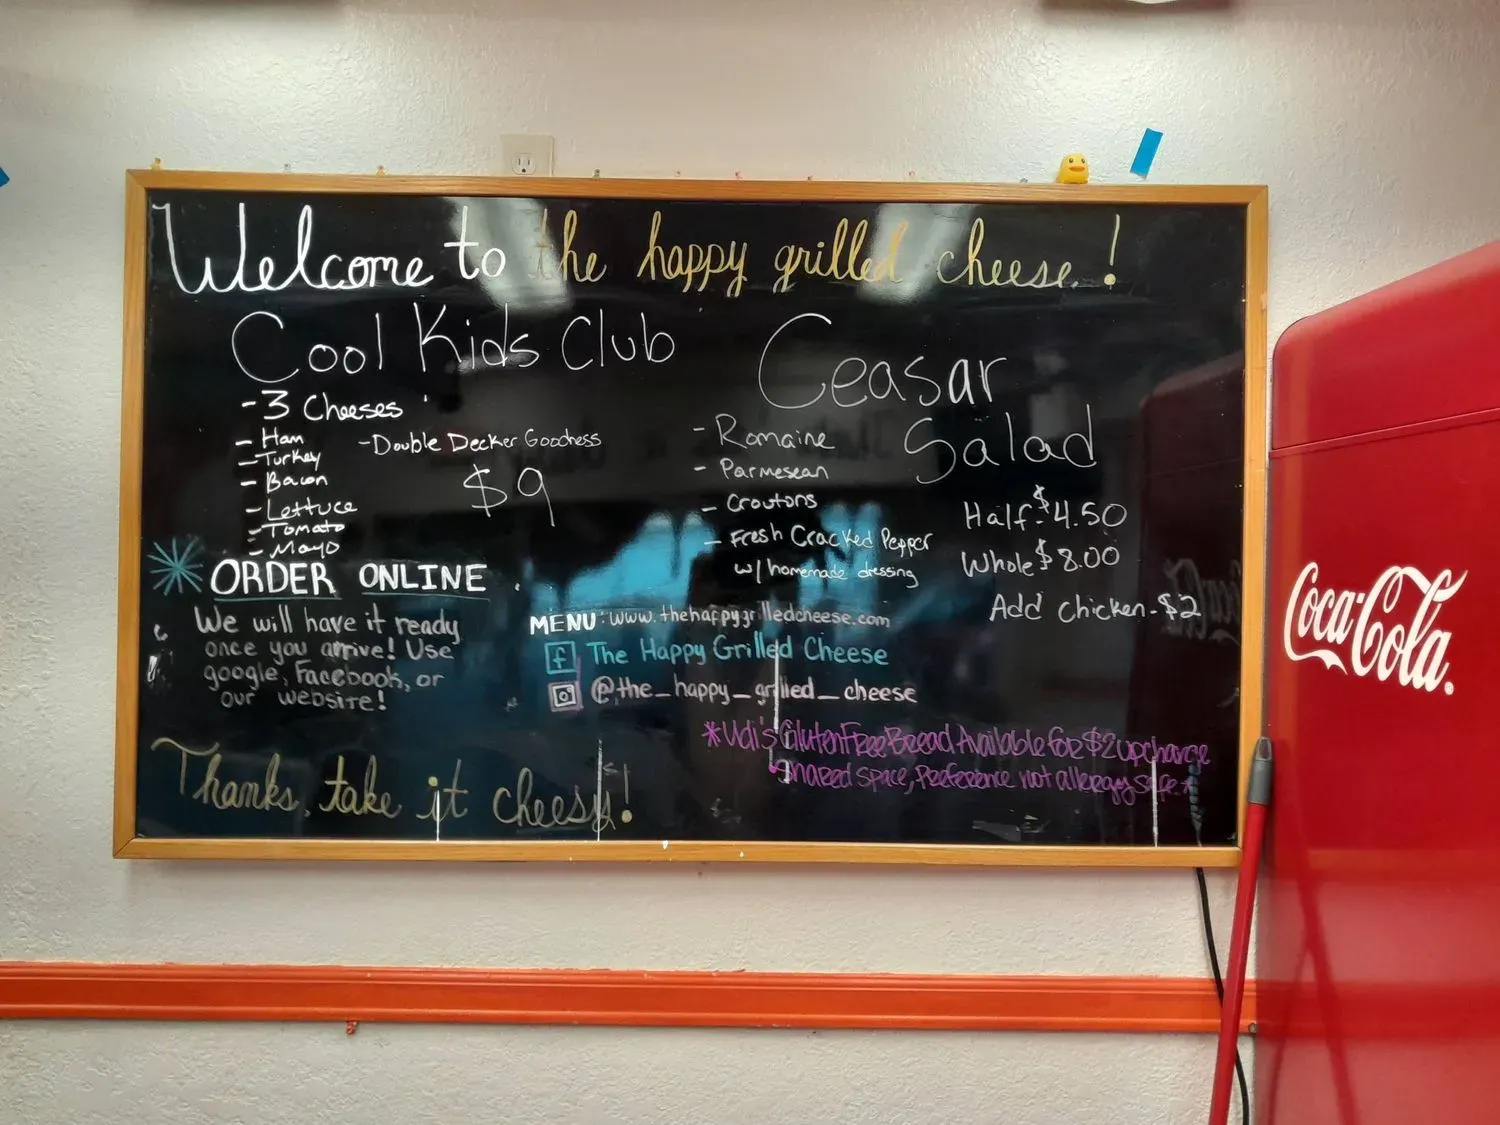 Welcome to the happy grilled cheese!
Cool Kids Club
- 3 Cheeses
- Ham
- Turkey
- Bacon
- Lettuce
- Tomato
- Mayo
- Double Decker Goodness
$9
Ceasar
Salad
- Romaine
- Parmesean
- Croutons
- Fresh Cracked Pepper
w/ homemade dressing
Half-$4.50
Whole $8.00
Add chicken-$2
ORDER ONLINE
We will have it ready
once you arrive! Use
google, Facebook, or
our website!
MENU: www.thehappygrilledcheese.com
f The Happy Grilled Cheese
@the_happy_grilled_cheese
*Udi's Gluten Free Bread Available for $2 upcharge
Shared space, Preference not allergy safe.*
Thanks, take it cheesy!
Coca-Cola